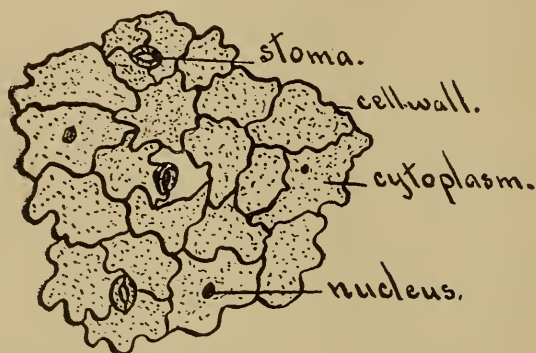 stoma.
cell wall.
cytoplasm.
nucleus.